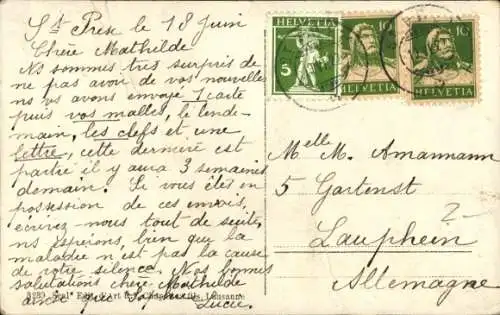 St Prex le 18 Juin
Chère Mathilde
Nos sommes très surpris de
ne pas avoir de vos nouvelles
ns vs avons envoyé 1 carte
puis vos malles, le lende-
main, les clefs et une
lettre, cette dernière est
partie il y aura 3 semaines
demain. Si vous êtes en
possession de ces envois,
écrivez-nous tout de suite,
ns espérons, bien que la
maladie n'est pas la cause
de votre silence. Nos bonnes
salutations chère Mathilde
Lucie.
HELVETIA
5
10
HELVETIA
10
HELVETIA
Melle M. Amannann
5 Gartenst
Laupheim
?
Allemagne
Lausanne